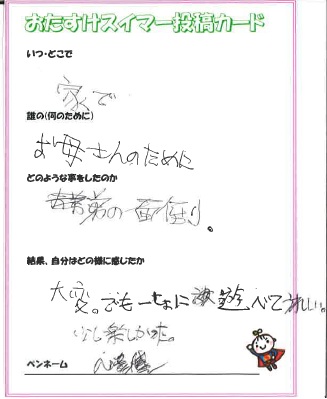 おたすけスイマー投稿カード
いつ・どこで
家で
誰の(何のために)
お母さんのために
どのような事をしたのか
弟の面倒。
結果、自分はどの様に感じたか
大変。でも一しょに 遊べてうれしい。
少し楽しかった。
ペンネーム